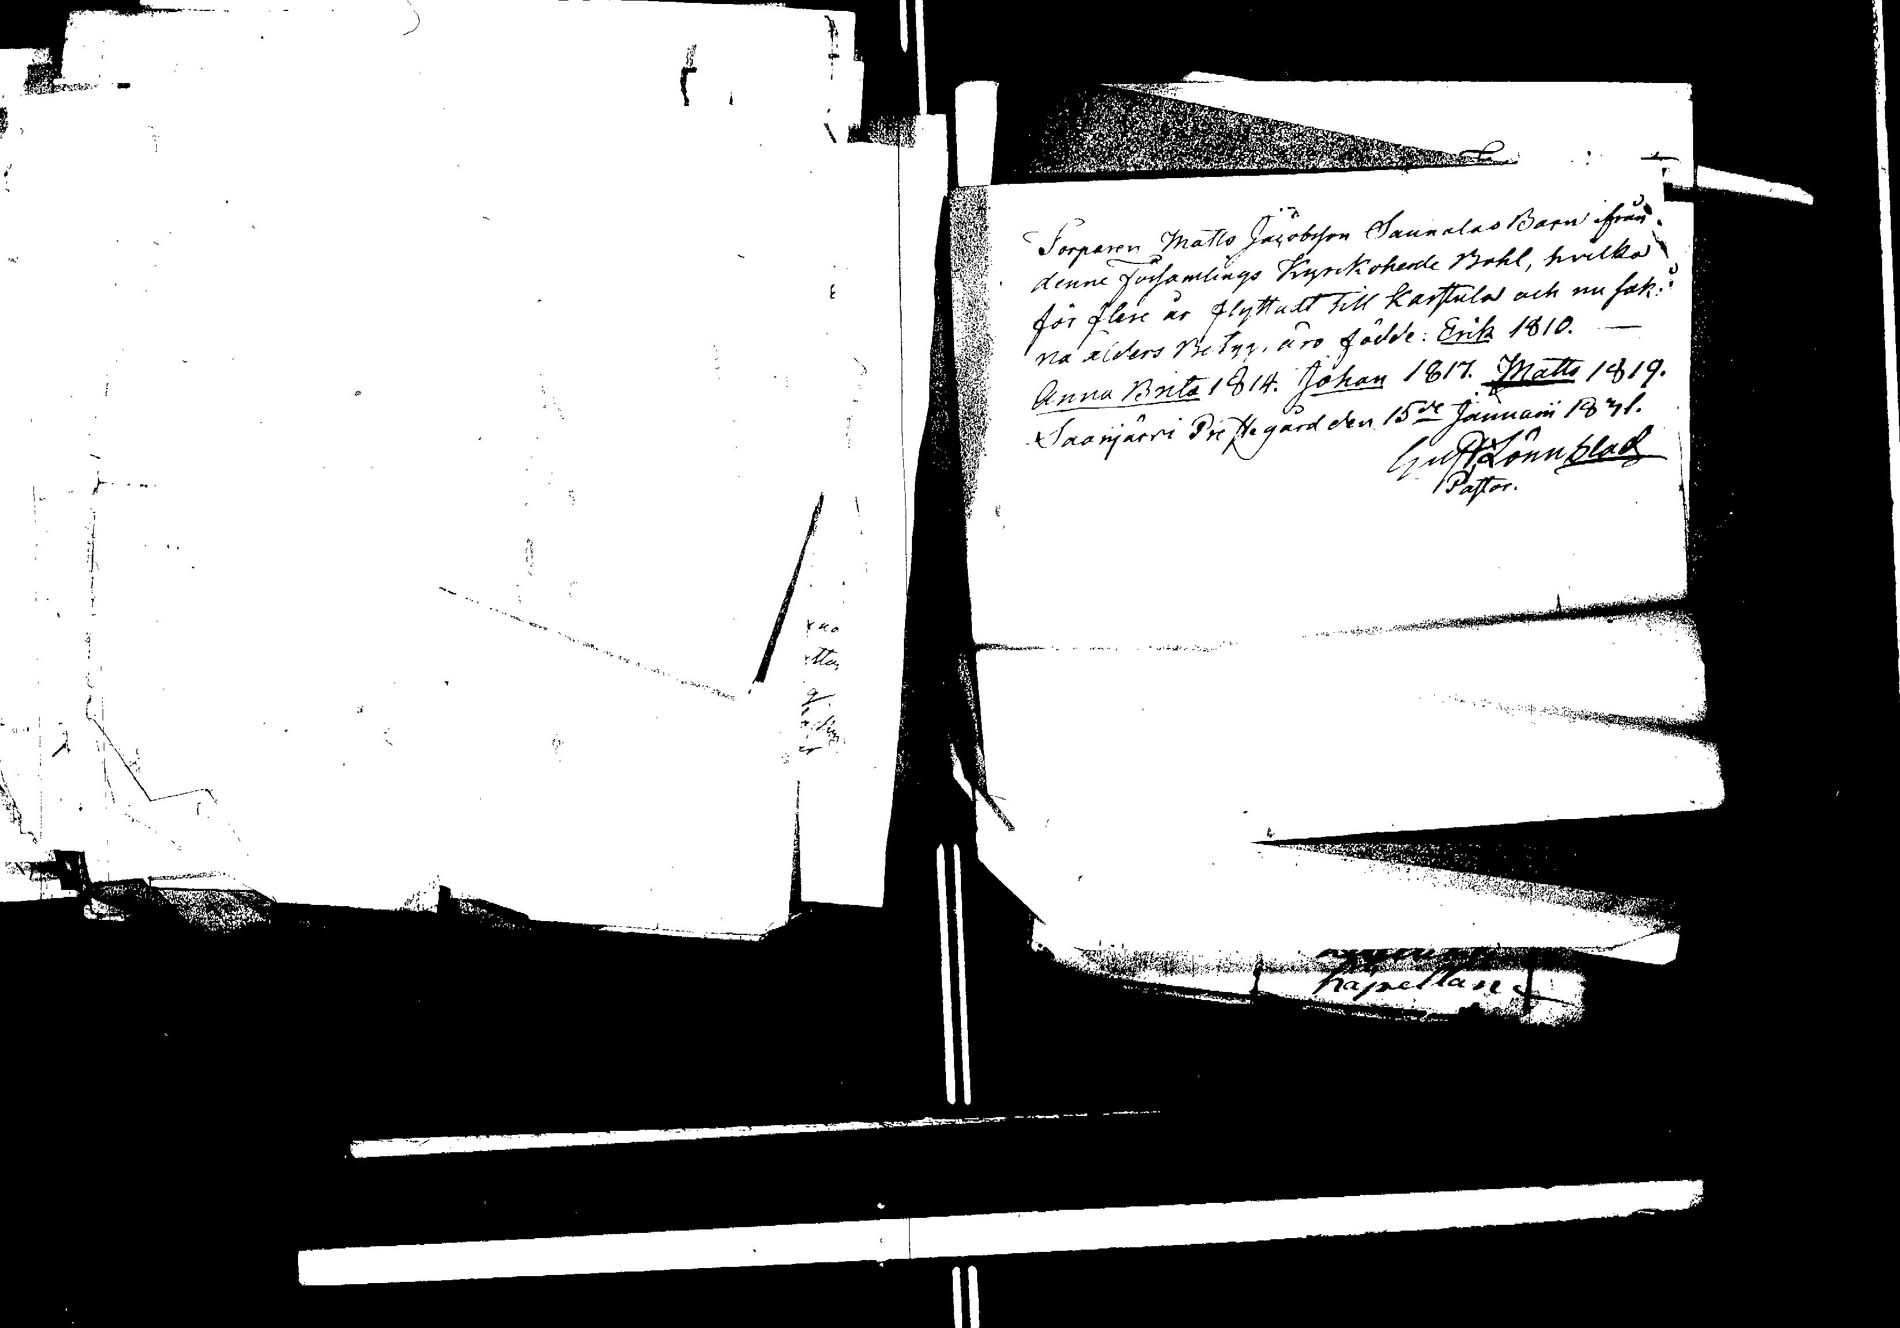 Torparen Matts Jacobsson Saunalas Barn ifrån
denne församlings Kyrckoherde Bohl, hvilka
för flere år flyttadt till Karstula och nu sak:
na ålders Betyg, äro födde: Erik 1810. —
Anna Brita 1814. Johan 1817. Matts 1819.
Saarijärvi Prestegård den 15de Januarii 1821.
Gust Lönnblad
Pastor.
kapellan